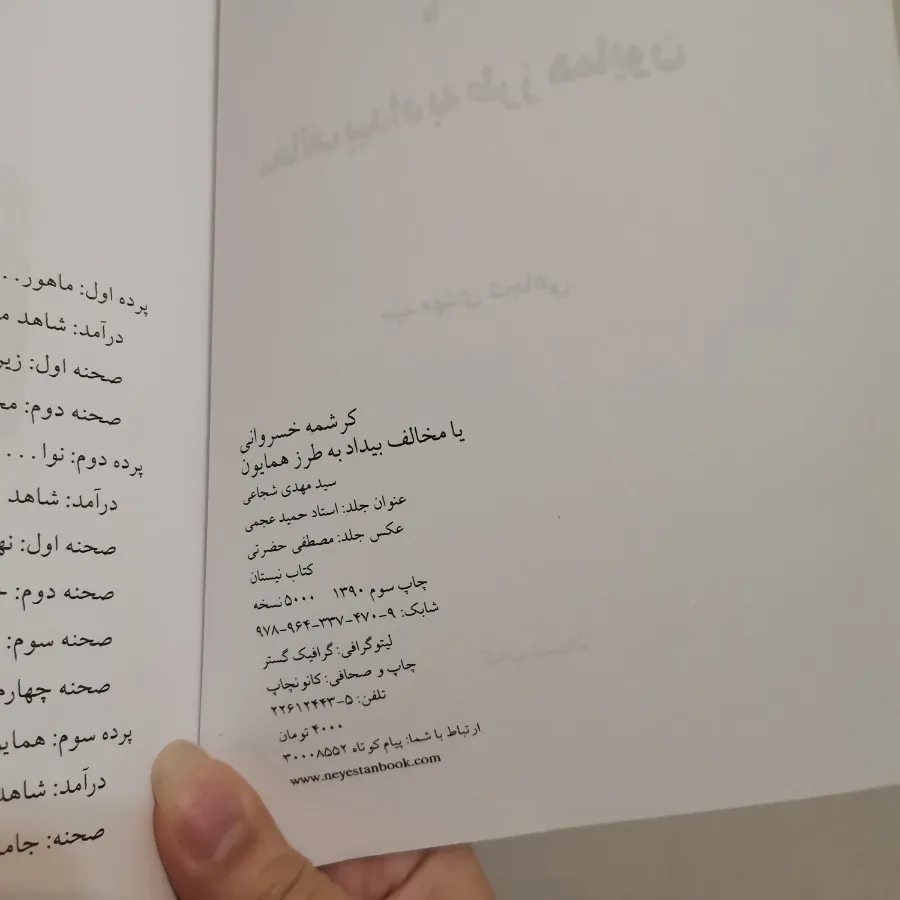 کرشمه خسروانی
یا مخالف بیداد به طرز همایون
سید مهدی شجاعی
عنوان جلد: استاد حمید عجمی
عکس جلد: مصطفی حضرتی
کتاب نیستان
چاپ سوم ۱۳۹۰ ۵۰۰۰ نسخه
شابک: ۹-۴۷۰-۳۳۷-۹۶۴-۹۷۸
لیتوگرافی: گرافیک گستر
چاپ و صحافی: کانونچاپ
تلفن: ۵-۲۲۶۱۲۴۴۳
۴۰۰۰ تومان
ارتباط با شما: پیام کوتاه ۳۰۰۰۸۵۵۲
www.neyestanbook.com
پرده اول: ماهور...
درآمد: شاهد
صحنه اول:
صحنه دوم:
پرده دوم: نوا...
درآمد: شاهد
صحنه اول:
صحنه دوم:
صحنه سوم:
صحنه چهارم
پرده سوم:
درآمد: شاهد
صحنه: